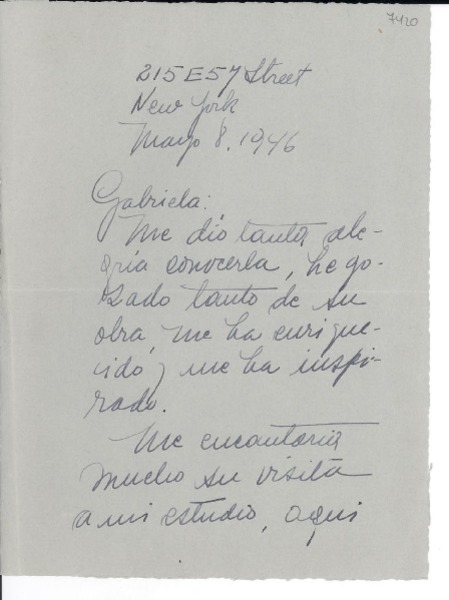 7420
215 E 57 Street
New York
Mayo 8, 1946
Gabriela:
Me dió tanta ale-
gría conocerla, he go-
zado tanto de su
obra, me ha enrique-
cido y me ha inspi-
rado.
Me encantaría
mucho su visita
a mi estudio, aqui